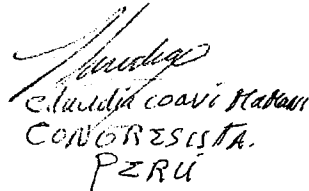 Claudia coari mamani
CONGRESISTA.
PERÚ